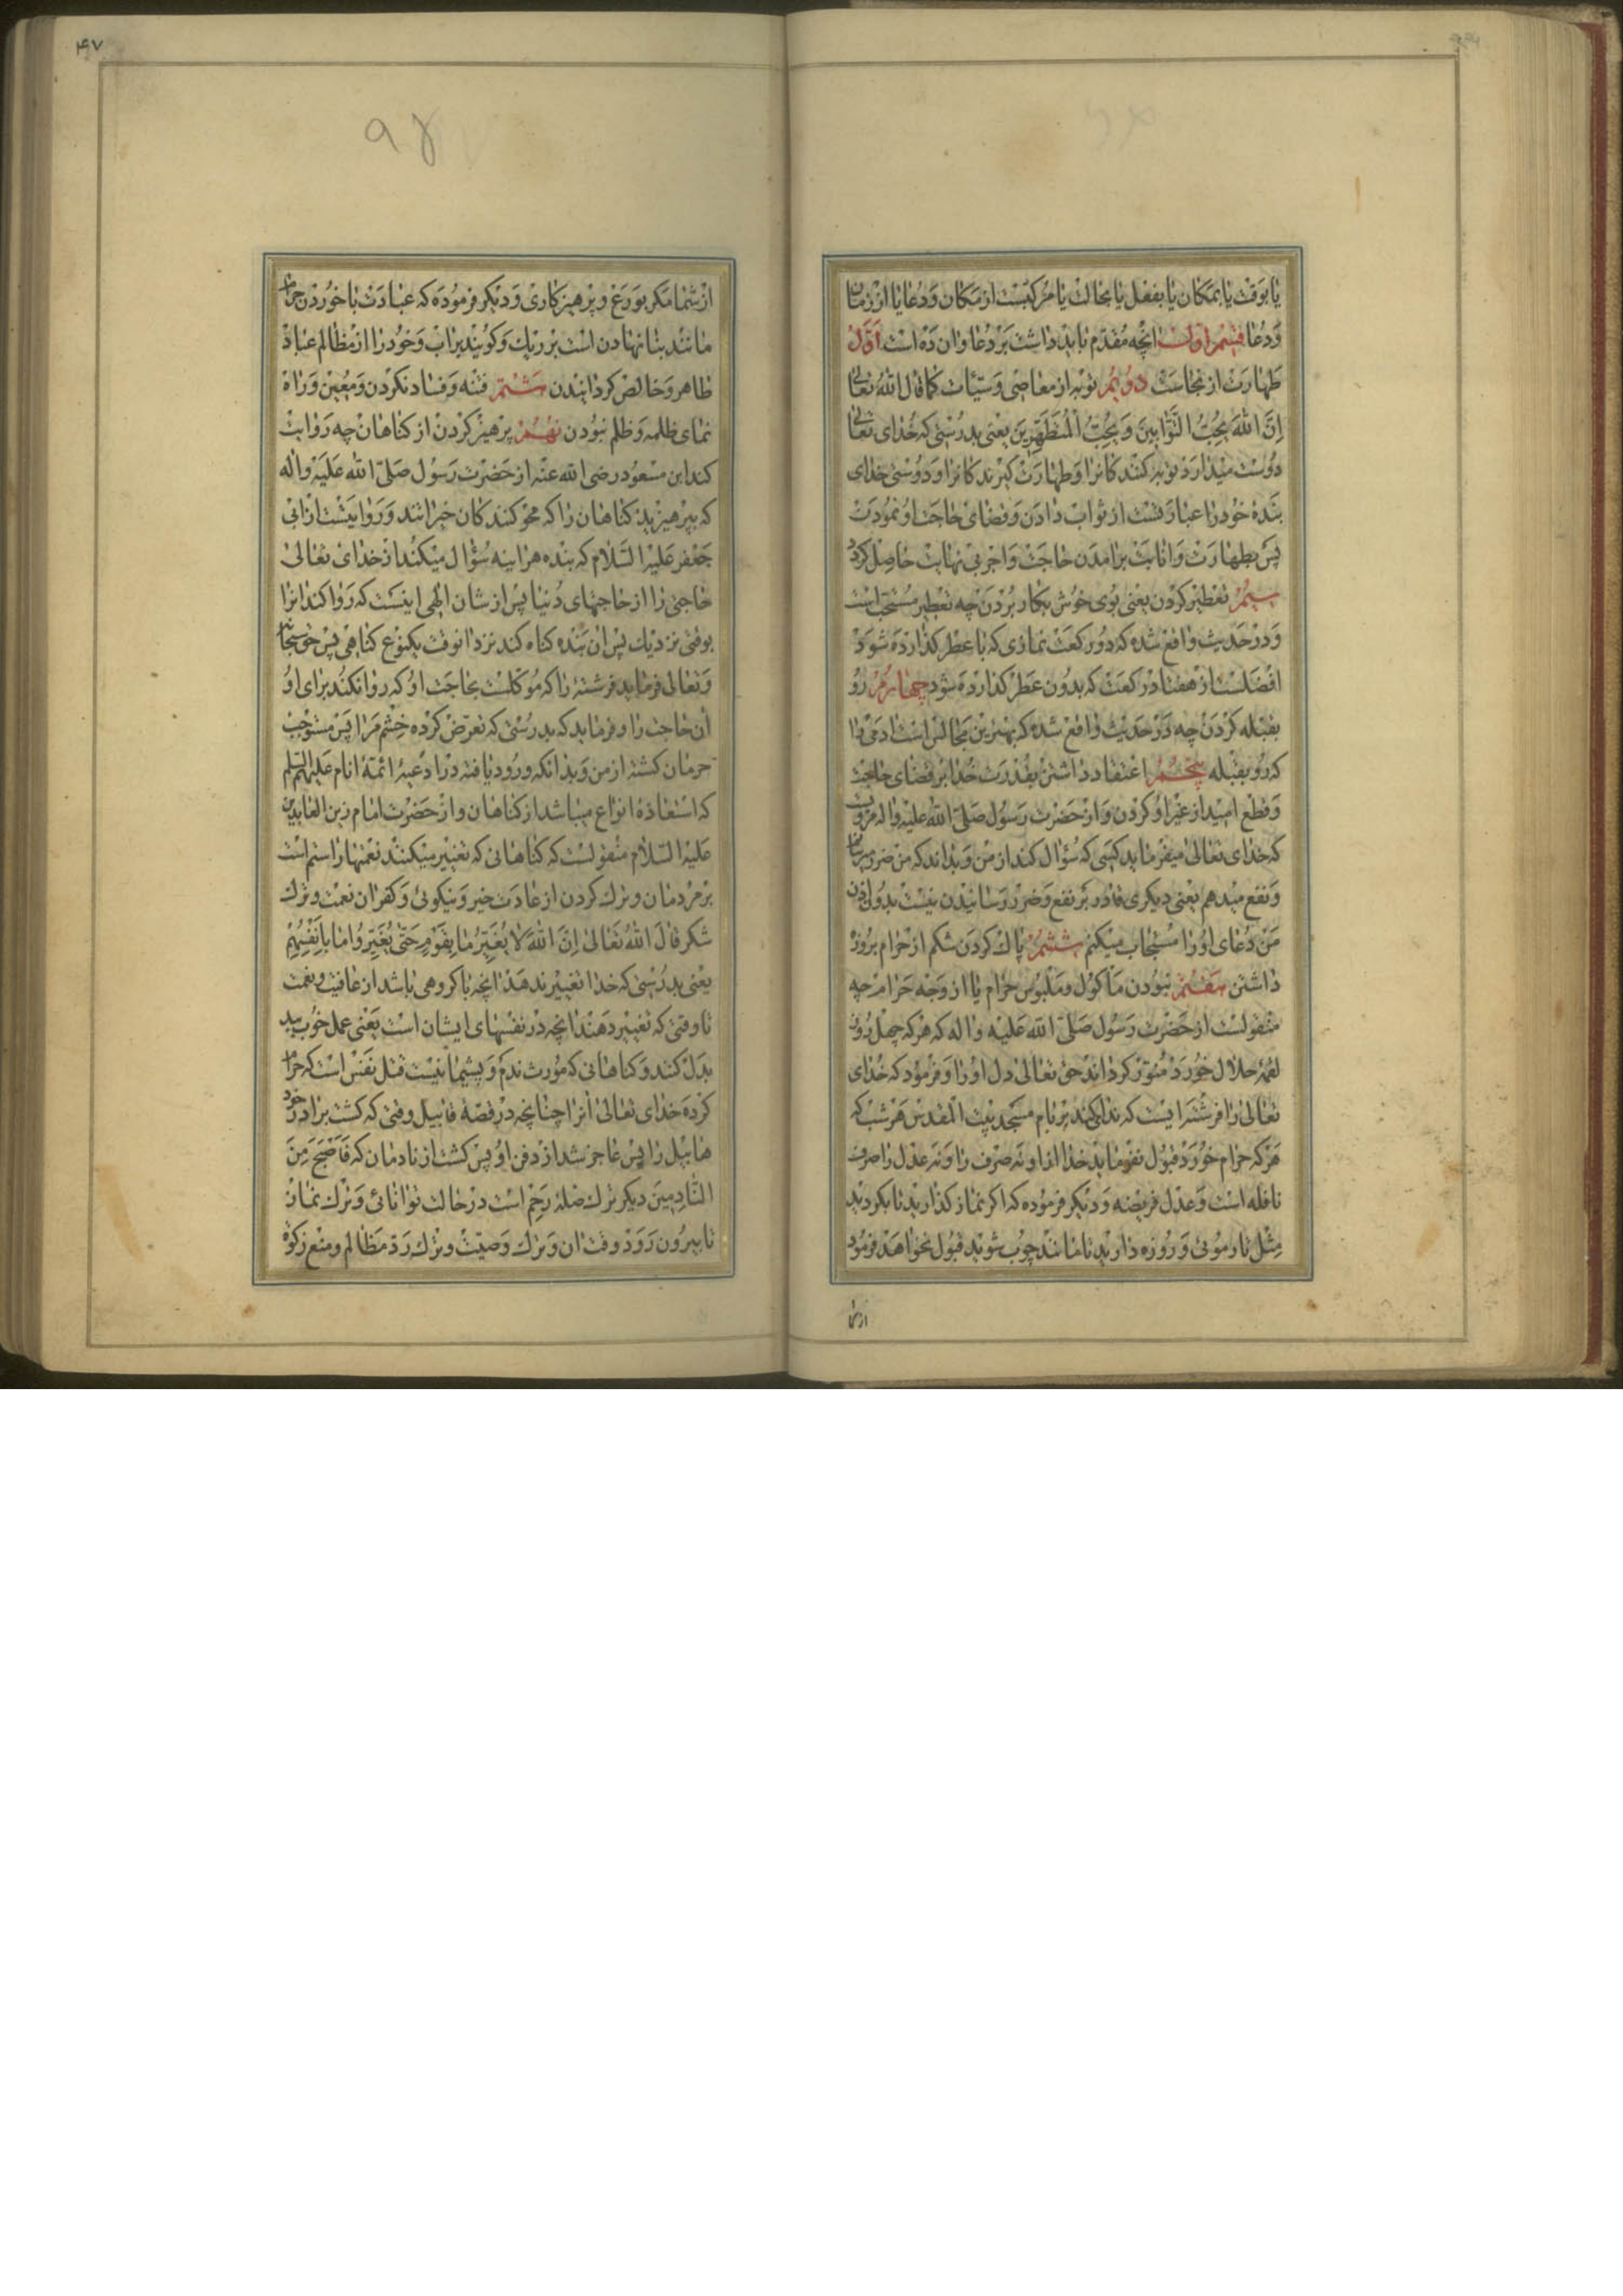 یا بوقت یا بمکان یا بفعل یا بحالت یا مرکبست از مکان و دعا یا از زمان
و دعا قسم اول انچه مقدم باید داشت بر دعا و ان ده است اول
طهارت از نجاست دویم توبه از معاصی و سیئات کما قال الله تعالی
اِنَّ اللهَ یُحِبُّ التَّوّابینَ وَ یُحِبُّ الْمُتَطَهِّرینَ یعنی بدرستی که خدای تعالی
دوست میدارد توبه کنندکانرا و طهارت کیرندکانرا و دوستی خدای
بنده خود را عبارتست از ثواب دادن و قضای حاجت او نمودن
پس بطهارت و انابت برامدن حاجت و اجر بی نهایت حاصل کردد
سیم تعطیر کردن یعنی بوی خوش بکار بردن چه تعطیر مستحب است
و در حدیث واقع شده که دو رکعت نمازی که با عطر کذارده شود
افضلست از هفتاد رکعت که بدون عطر کذارده شود چهارم رو
بقبله کردن چه در حدیث واقع شده که بهترین مجالس است ادمی را
که رو بقبله پنجم اعتقاد داشتن بقدرت خدا بر قضای حاجت
و قطع امید از غیر او کردن و از حضرت رسول صلی الله علیه و اله مرویست
که خدای تعالی میفرماید کسی که سؤال کند از من و بداند که من ضرر میرسانم
و نفع میدهم یعنی دیکری قادر بر نفع و ضرر رسانیدن نیست بدون اذن
من دعای او را مستجاب میکنم ششم پاک کردن شکم از حرام بروزه
داشتن هفتم نبودن ماکول و ملبوس حرام یا از وجه حرام چه
منقولست از حضرت رسول صلی الله علیه و اله که هر که چهل روز
لقمۀ حلال خورد منور کرداند حق تعالی دل او را و فرمود که خدای
تعالی را فرشته ایست که ندا کند بر بام مسجد بیت المقدس هر شب که
هر که حرام خورد قبول نفرماید خدا از او نه صرف را و نه عدل را صرف
نافله است و عدل فریضه و دیکر فرموده که اکر نماز کذارید تا بکردید
مثل تار موئی و روزه دارید تا مانند چوب شوید قبول نخواهد فرمود
از شما
۴۷
از شما مکر بورع و پرهیزکاری و دیکر فرموده که عبادت با خوردن حرام
مانند بنا نهادن است بر ریک و کویند بر اب و خود را از مظالم عباد
طاهر و خالص کردانیدن هشتم فتنه و فساد نکردن و معین و راه
نمای ظلمه و ظلم نبودن نهم پرهیز کردن از کناهان چه روایت
کند ابن مسعود رضی الله عنه از حضرت رسول صلی الله علیه و اله
که بپرهیزید کناهان را که محو کنندکان خیراتند و روایتست از ابی
جعفر علیه السلام که بنده هراینه سؤال میکند از خدای تعالی
حاجتی را از حاجتهای دنیا پس از شان الهی اینست که روا کند انرا
بوقتی نزدیک پس ان بنده کناه کند نزد انوقت یکنوع کناهی پس حق سبحانه
و تعالی فرماید فرشتۀ را که موکلست بحاجت او که روا نکند برای او
ان حاجت را و فرماید که بدرستی که تعرض کرده خشم مرا پس مستوجب
حرمان کشته از من و بدانکه ورود یافته در ادعیۀ ائمۀ انام علیهم السلم
که استعاذه انواع میباشد از کناهان و از حضرت امام زین العابدین
علیه السلام منقولست که کناهانی که تغییر میکنند نعمتها را ستم است
بر مردمان و ترک کردن از عادت خیر و نیکوئی و کفران نعمت و ترک
شکر قال الله تعالی اِنَّ اللهَ لا یُغَیِّرُ ما بِقَوْمٍ حَتّی یُغَیِّرُوا ما بِاَنْفُسِهِمْ
یعنی بدرستی که خدا تغییر ندهد انچه با کروهی باشد از عافیت و نعمت
تا وقتی که تغییر دهند انچه در نفسهای ایشان است یعنی عمل خوب ببد
بدل کنند و کناهانی که مورث ندم و پشیمانیست قتل نفس است که حرام
کرده خدای تعالی انرا چنانچه در قصۀ قابیل وقتی که کشت برادر خود
هابیل را پس عاجز شد از دفن او پس کشت از نادمان که فَاَصْبَحَ مِنَ
النّادِمینَ دیکر ترک صلۀ رحم است در حالت توانائی و ترک نماز
تا بیرون رود وقت ان و ترک وصیت و ترک رد مظالم و منع زکوة